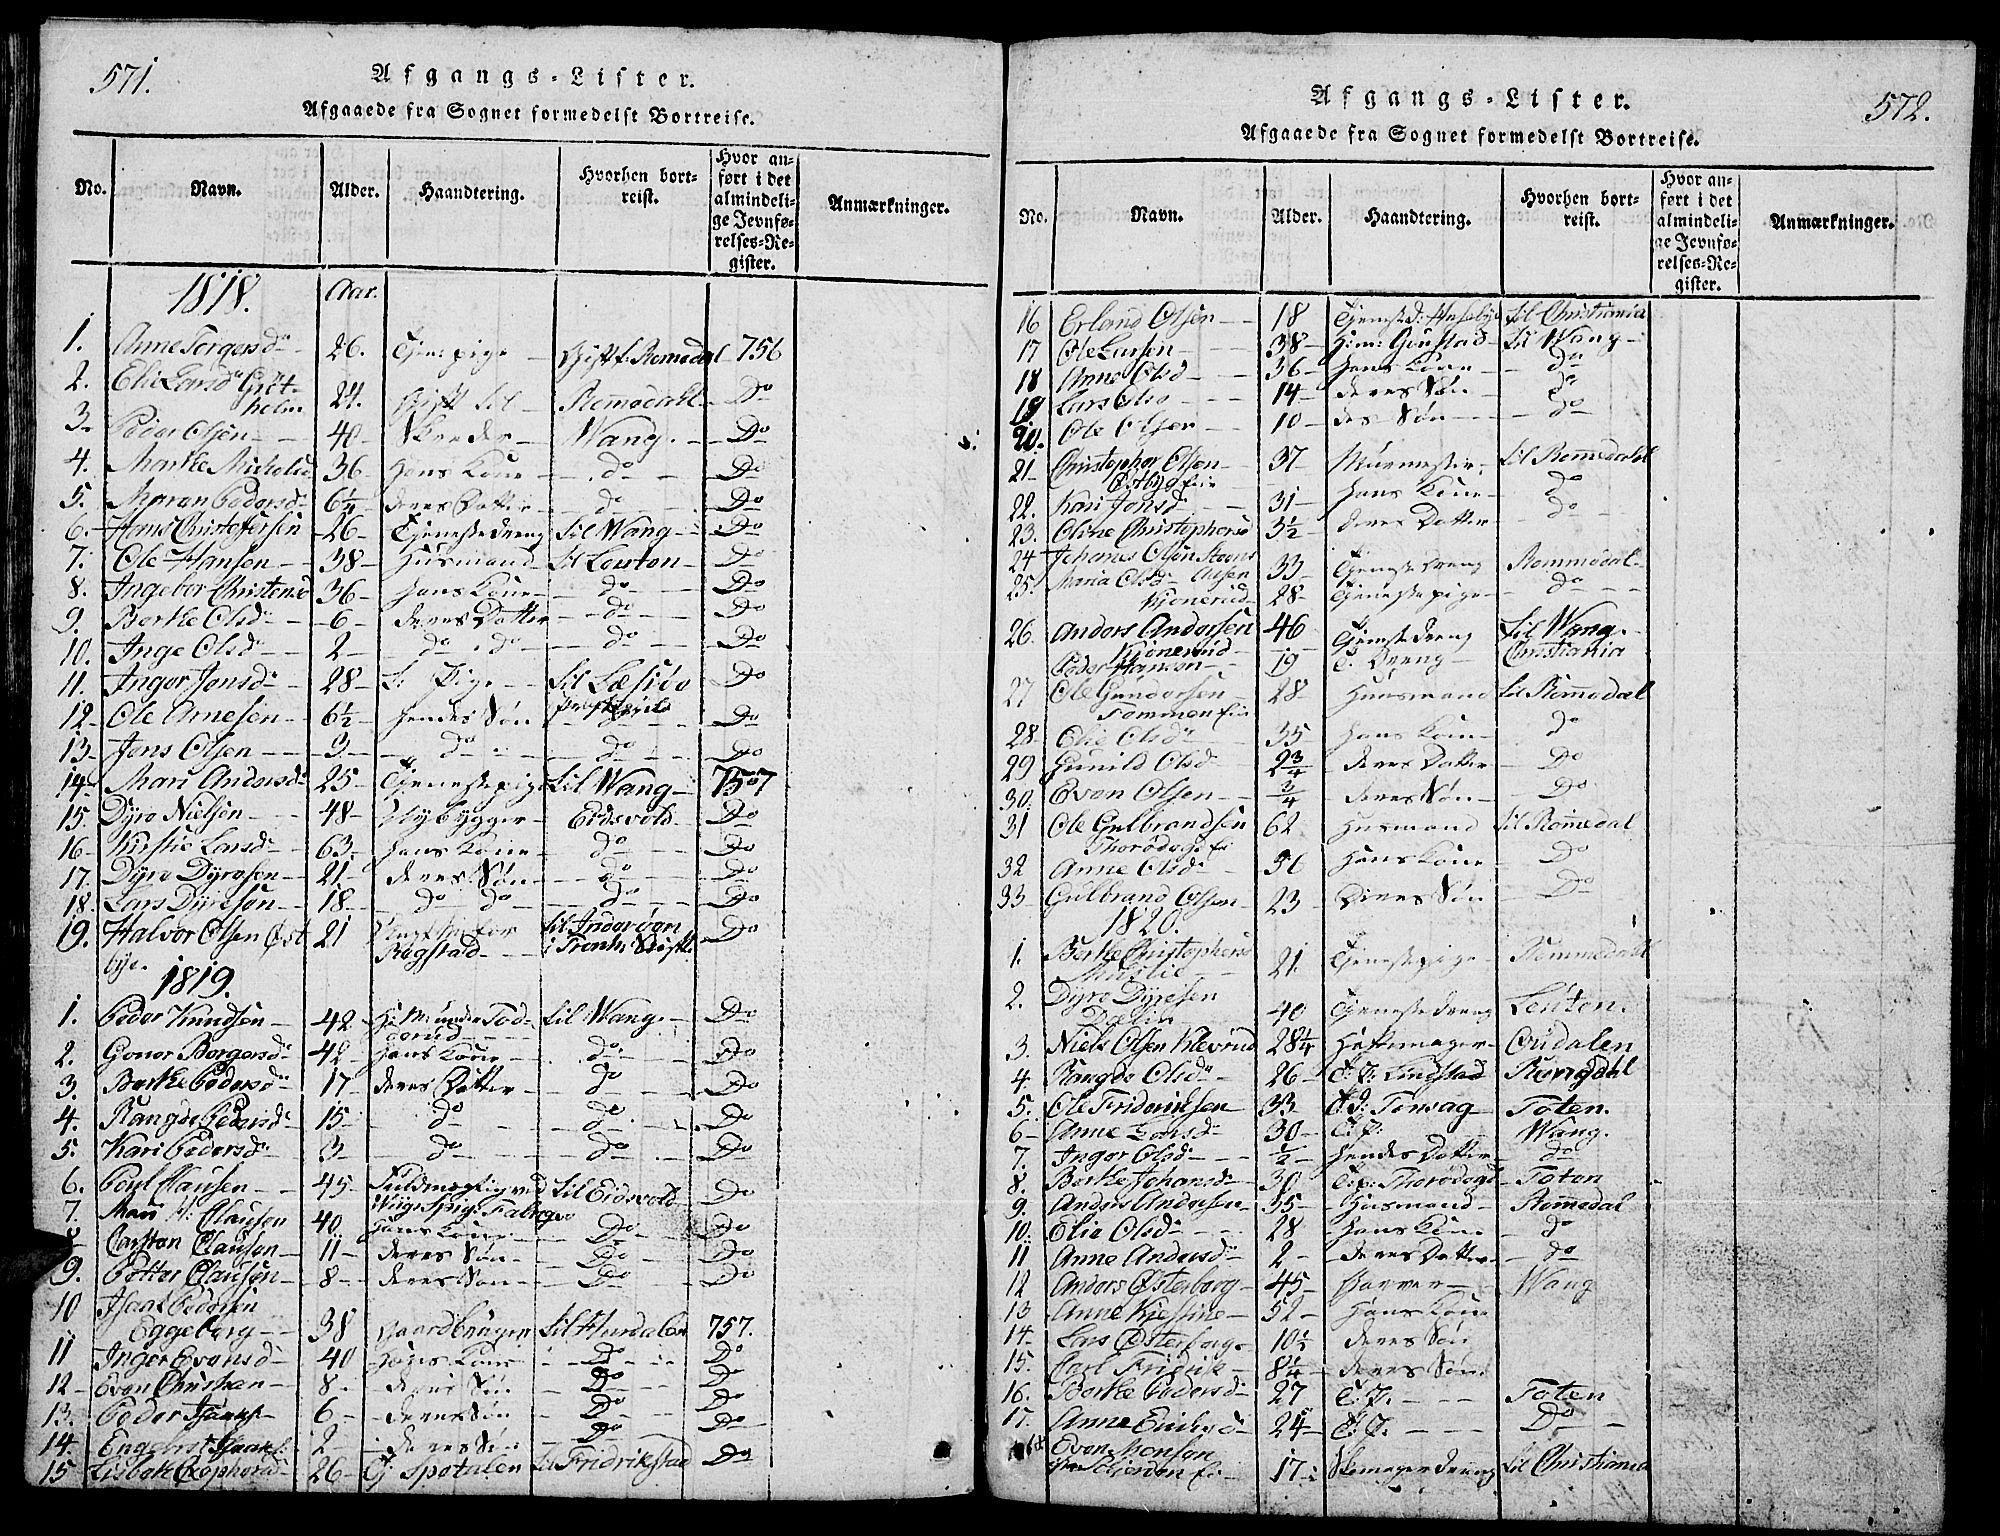 571.
Afgangs-Lister.
Afgaaede fra Sognet formedelst Bortreise.
No. Navn. Alder. Haandtering. Hvorhen bortreist. Hvor anført i det almindelige Jevnførelses-Register. Anmærkninger.
1818. Aar.
1. Anne Torgersd. 26. Romedal 756
2. Elie Larsd. 24. Gift til Romedahl Do
3. Peder Olsen 40 Wang. Do
4. Marthe 36 Hans Kone do Do
5. Maren Pedersd. 6¼ deres Datter do Do
6. Hans Christofersen 26 Tjenestedreng til Wang Do
7. Ole Hansen 38 Husmand til Leuten Do
8. Ingebor Christensd 36 Hans Kone do Do
9. Berthe Olsd. 6 deres Datter do Do
10. Inge Olsd. 2 do do do Do
11. Inger Jonsd. 28 T. Pige til Do
12. Ole Arnesen 6½ hendes Søn Do
13. Jens Olsen 3 do do Do
14. Mari Andersd. 25 Tjenestepige til Wang 757
15. Dyre Nielsen 48 Nybygger Eidsvold Do
16. Kirstie Larsd. 63 hans Kone do Do
17. Dyre Dyresen 21 deres Søn do Do
18. Lars Dyresen 18 do do do Do
19. Halvor Olsen Øst- 21 til Inderøen Do
bye. Rogstad i Tronh. Stift
1819.
1. Peder Knudsen 42 til Wang. Do
2. Goner Borgersd. 42 hans Kone do Do
3. Berthe Pedersd. 17 deres Datter do Do
4. Rangde Pedersd. 15 do do Do
5. Kari Pedersd. 3 do do Do
6. Poul Clausen 45 Fuldmægtig ved til Eidsvold Do
7. Mari H. Clausen 40 hans Kone Do Do
8 Carsten Clausen 11 deres Søn Do Do
9. Petter Clausen 8 deres Søn Do Do
10 Isaac Pedersen
Eggeberg 38 Gaardbruger til Hurdalen 757.
11 Inger Evensd. 40 Hans Kone Do Do
12 Even Christian 8 deres Søn Do Do
13. Peder Isaaks. 6 deres Søn Do Do
14. Engebret Isaaks. 2 deres Søn Do
15 Lisbeth 26 til Fridrikstad Do
572.
Afgangs-Lister.
Afgaaede fra Sognet formedelst Bortreise.
No. Navn. Alder. Haandtering. Hvorhen bortreist. Hvor anført i det almindelige Jevnførelses-Register. Anmærkninger.
16 Erland Olsen 18 til Christiania
17 Ole Larsen 38 til Wang
18 Anne Olsd 36 hans Kone do
19 Lars Olse 14 deres Søn do
20. Ole Olsen 10 des Søn do
21 Christopher Olsen 37 Muurmester til Romedahl
Østbye Eie
22. Kari Jonsd 31 hans Kone do
23. Oline Christophersd 3½ deres Datter do
24 Johanes Olsen 33 Tjenestedreng Rommedal
25. Maria Olsd.
Kjonerud 28 Tjenestepige do
26. Anders Andersen 46 Tjenestedreng til Wang.
Kjonerud
Peder Hansen 19 T. Dreng Christiania
27 Ole Gundersen 28 Huusmand til Romedal
Tommen Eie
28 Elie Olsd. 35 hans Kone do
29 Gunild Olsd 2¾ deres Datter Do
30. Even Olsen ¾ deres Søn Do
31 Ole Gulbrandsen 62 Husmand til Romedal
32 Anne Olsd. 56 Hans Kone Do
33 Gulbrand Olsen 23 Deres Søn Do
1820.
1. Berthe Christophersd 21. Tjenestepige Rommedahl
2. Dyre Dyresen
40 Tjenestedreng Leuten.
3. Niels Olsen Klevrud 28¼ Oudalen
4. Rangde Olsd. 26 T. P. Lindstad Romedal
5. Ole Frideriksen 33 Toten.
6 Anne Larsd 30 T. P. Wang.
7. Inger Olsd ½ hendes Datter do
8. Berthe Johansd. 30 Toten
9. Anders Andersen 35 Husmand Romedal
10. Elie Olsd. 28 hans Kone do
11 Anne Andersd. 2 deres Datter do
12 Anders Østerberg 45 Garver Wang
13 Anne Kiestine 52 Hans Kone
14. Lars Østerberg 10½ deres Søn
15. Carl Fridrik 8¼ deres Søn
16. Berthe Pedersd 27 T. P. Toten
17. Anne Ericksd 24 T. P. Do
Even Monsen
17½ Skomagerdreng til Christiania